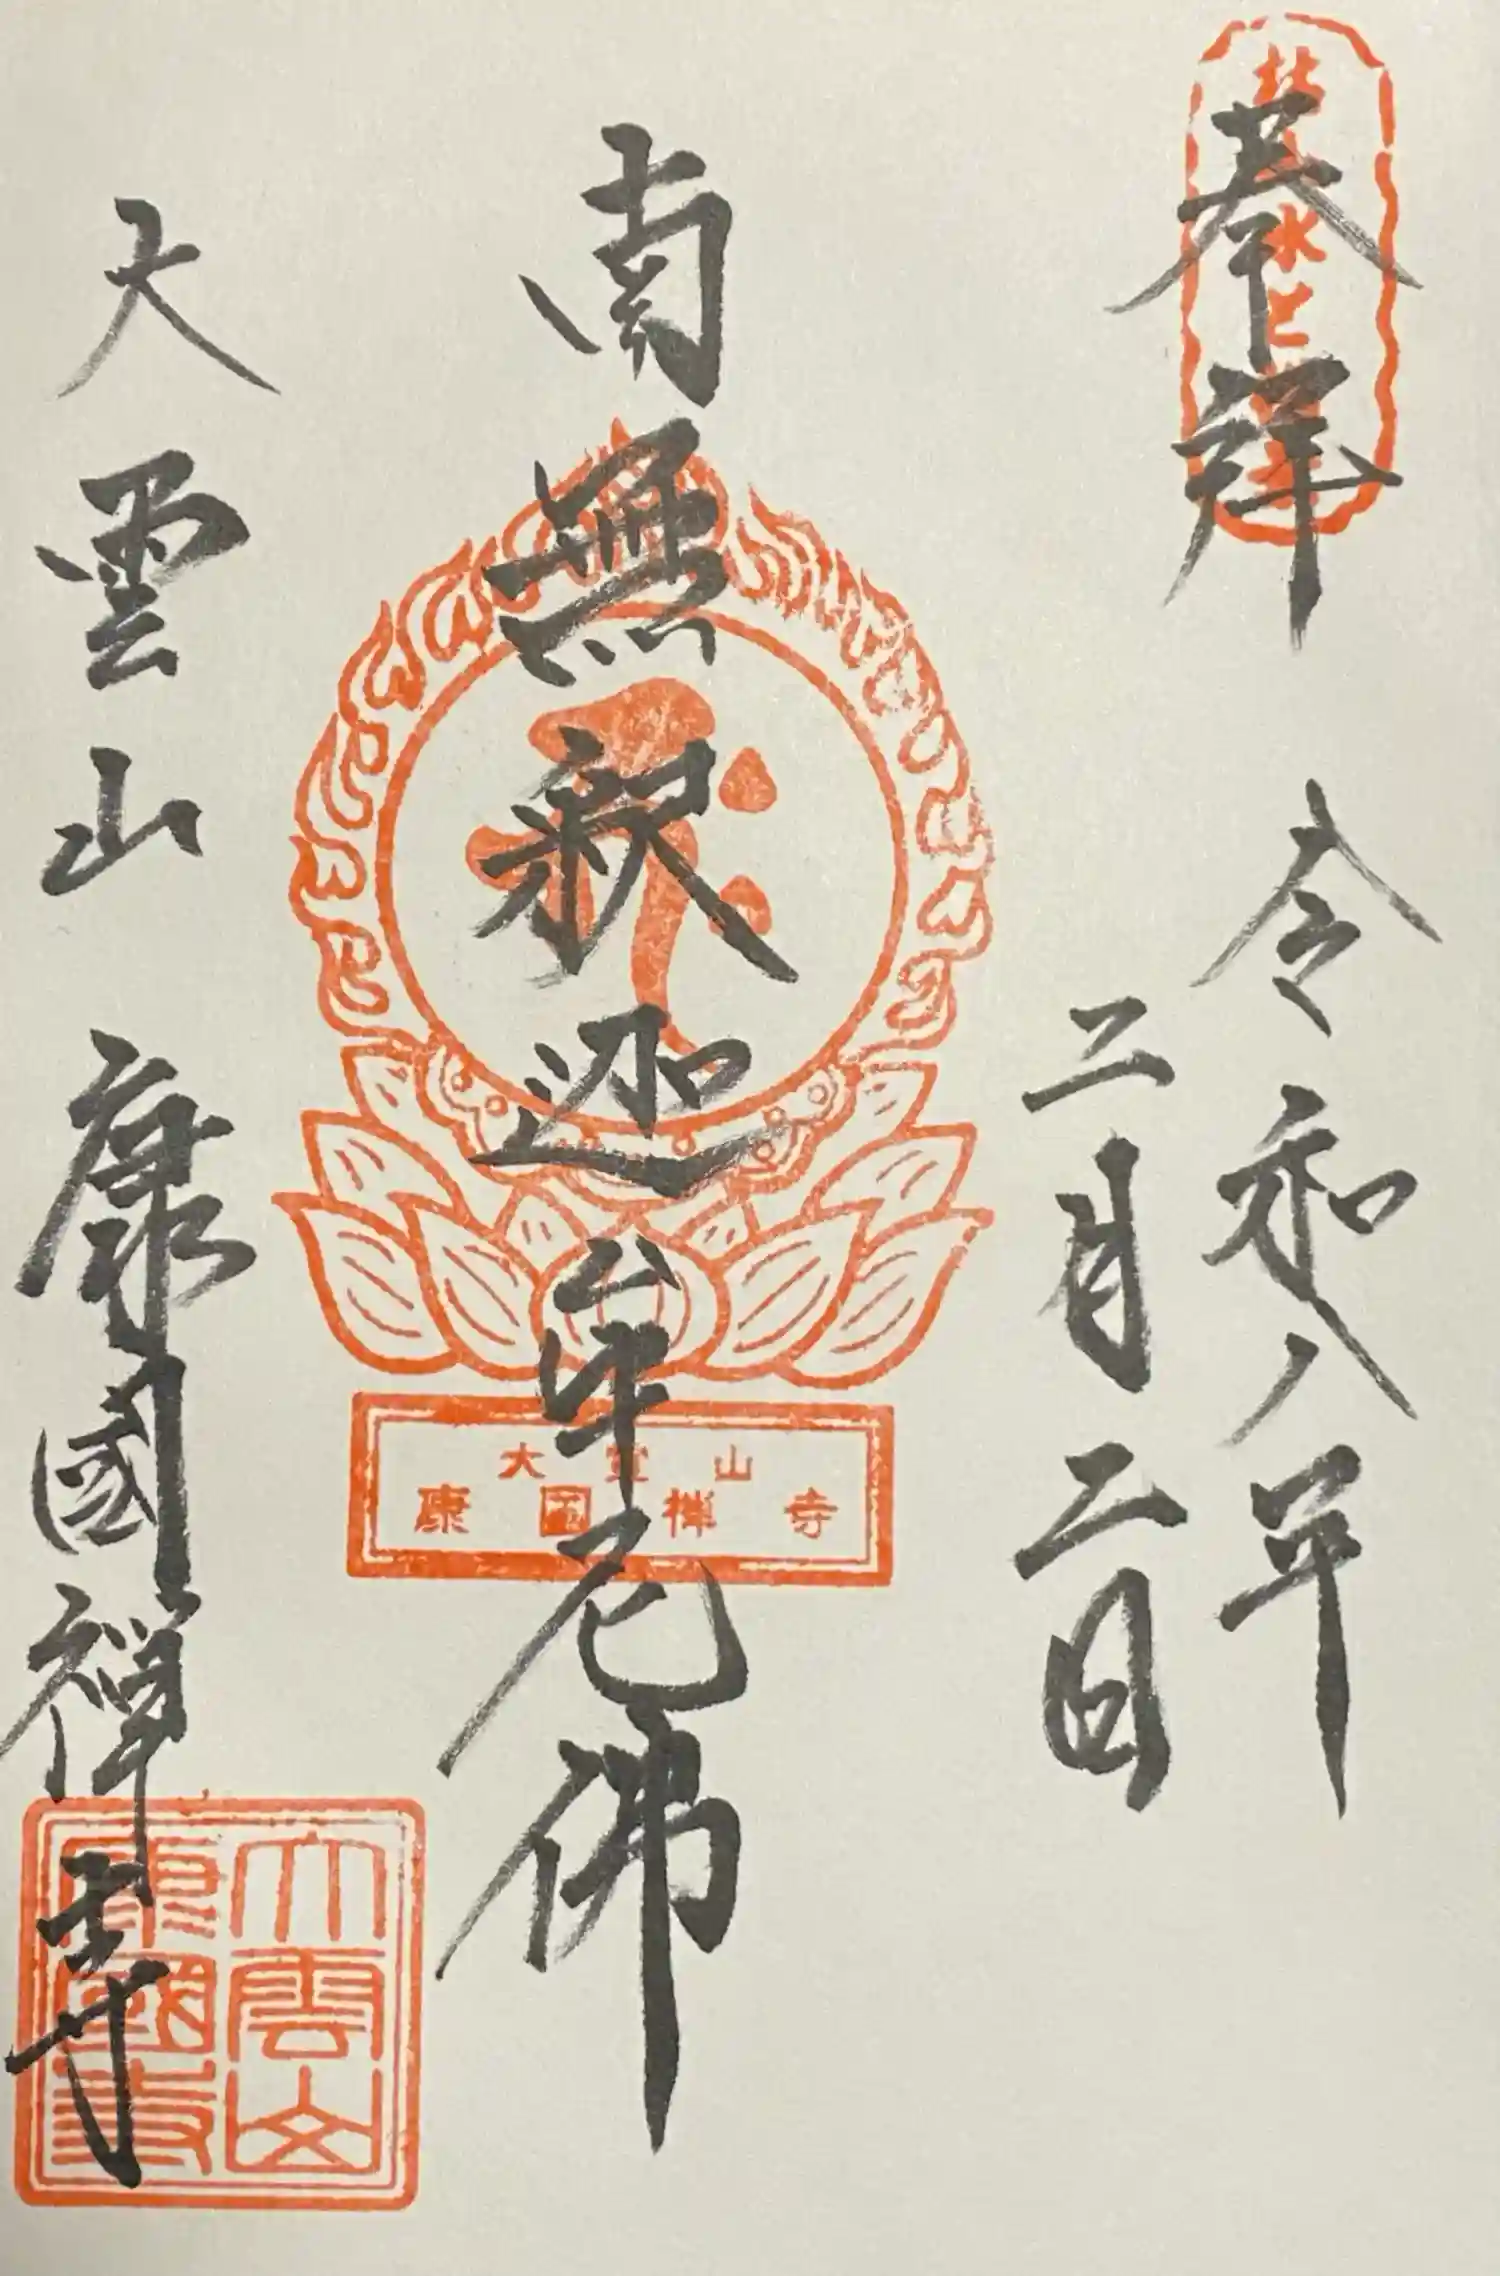 奉拝
令和八年
二月二日
南無釈迦牟尼佛
大雲山
康国禅寺
大雲山康國禅寺
大雲山
康國寺